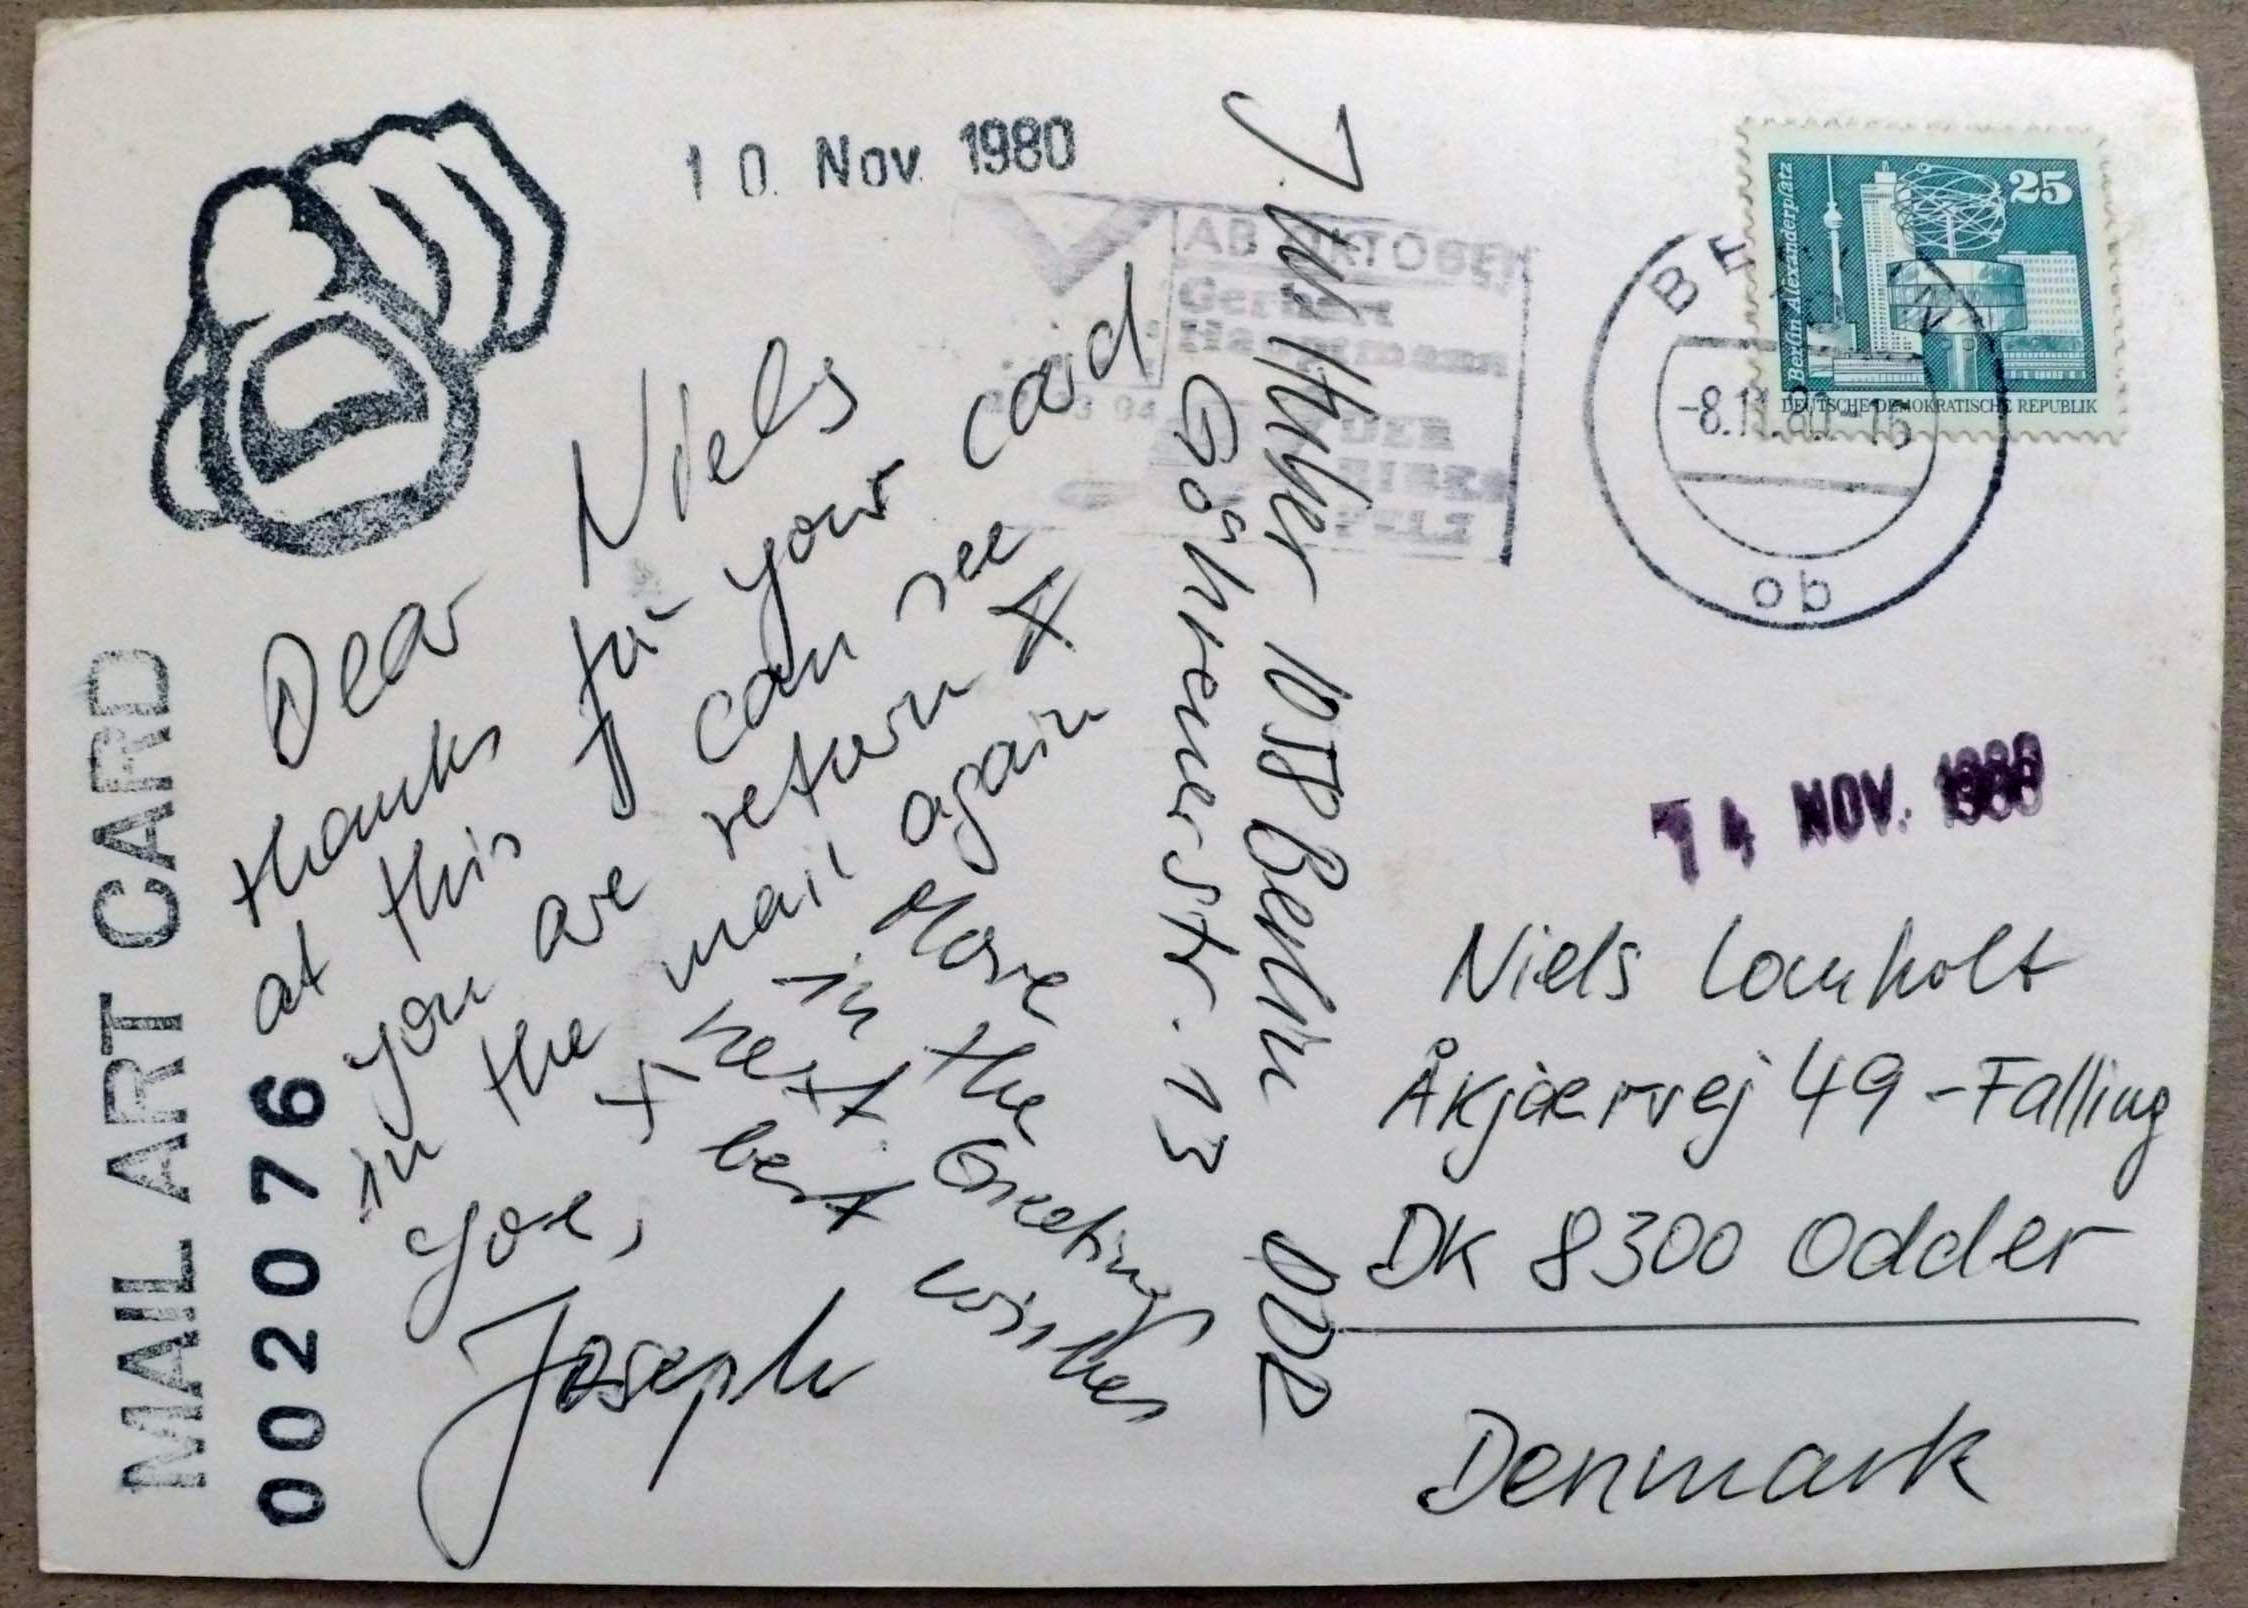 10. Nov. 1980
Dear Niels
thanks for your card
at this you can see
you are return #
in the mail again
You,
Joseph
+ More
in the
next Greetings
best wishes
MAIL ART CARD
002076
J. W. Huber 1058 Berlin DDR
Göhrenerstr. 13
AB OKTOBER
Gerhart
Hauptmann
DER
BIBER
PELZ
25
Berlin, Alexanderplatz
DEUTSCHE DEMOKRATISCHE REPUBLIK
BERLIN
-8.11.80-16
ob
14 NOV. 1980
Niels Lomholt
Åkjaervej 49 - Falling
DK 8300 Odder
Denmark